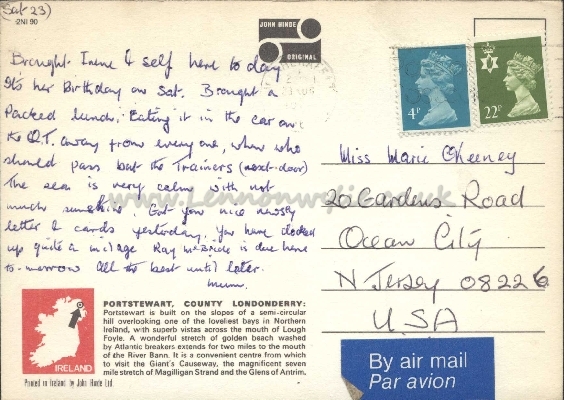 Sat 23)
2NI 90
JOHN HINDE
ORIGINAL
Brought Irene & self here to day
Its her Birthday on Sat. Brought a
Packed lunch. Eating it in the car on
the Q.T. away from every one, when who
should pass but the Trainers (next-door)
The sea is very calm with not
much sunshine. Got you nice newsy
letter & cards yesterday. You have clocked
up quite a milage Ray McBride is due here
to-morrow All the best until later.
Mum.
4P
22P
Miss Marie Cheeney
20 Gardens Road
Ocean City
N Jersey 08226
USA
www.Lennonwylie.co.uk
PORTSTEWART, COUNTY LONDONDERRY:
Portstewart is built on the slopes of a semi-circular
hill overlooking one of the loveliest bays in Northern
Ireland, with superb vistas across the mouth of Lough
Foyle. A wonderful stretch of golden beach washed
by Atlantic breakers extends for two miles to the mouth
of the River Bann. It is a convenient centre from which
to visit the Giant's Causeway, the magnificent seven
mile stretch of Magilligan Strand and the Glens of Antrim.
IRELAND
Printed in Ireland by John Hinde Ltd.
By air mail
Par avion